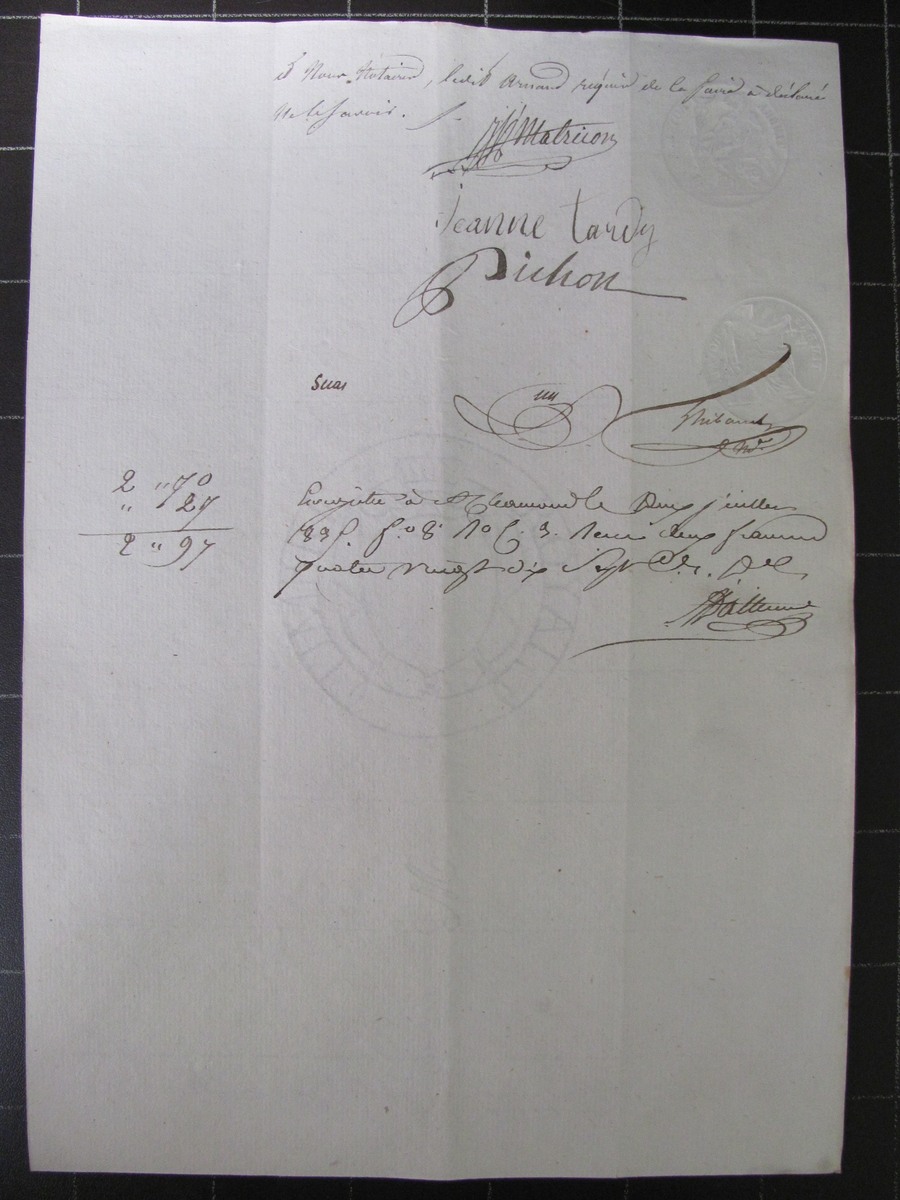 et Nous Notaires, ledit Arnaud requis de le faire a déclaré
ne le savoir.
Matricon
Jeanne tardy
Pichon
Thibaud
Nre
2 " 70
" 27
2 " 97
Enregistré à St Chamond le onze juillet
183 fo 8 Ro C. 3. Reçu deux francs
quatre vingt dix sept c.